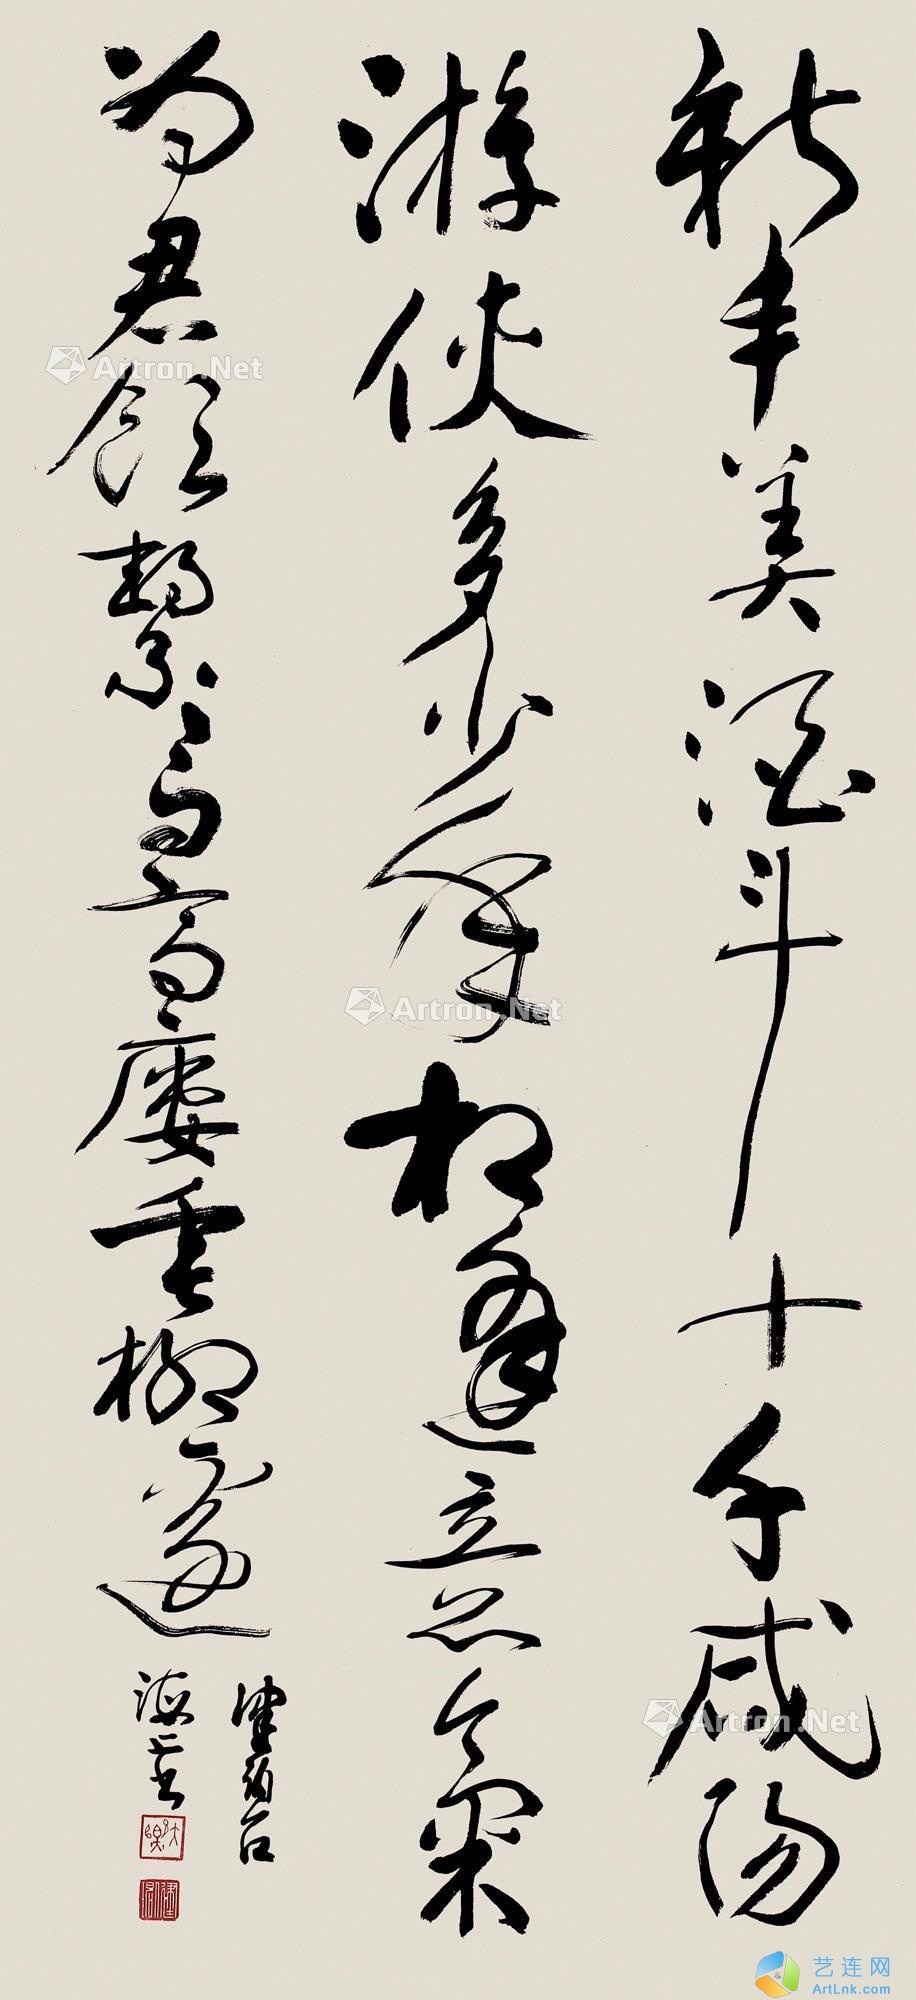 新丰美酒斗十千咸陽
游俠多少年相逢意氣
為君飲繫馬高樓垂柳邊
Artron.Net
Artron.Net
Artron.Net
艺连网
ArtLnk.com